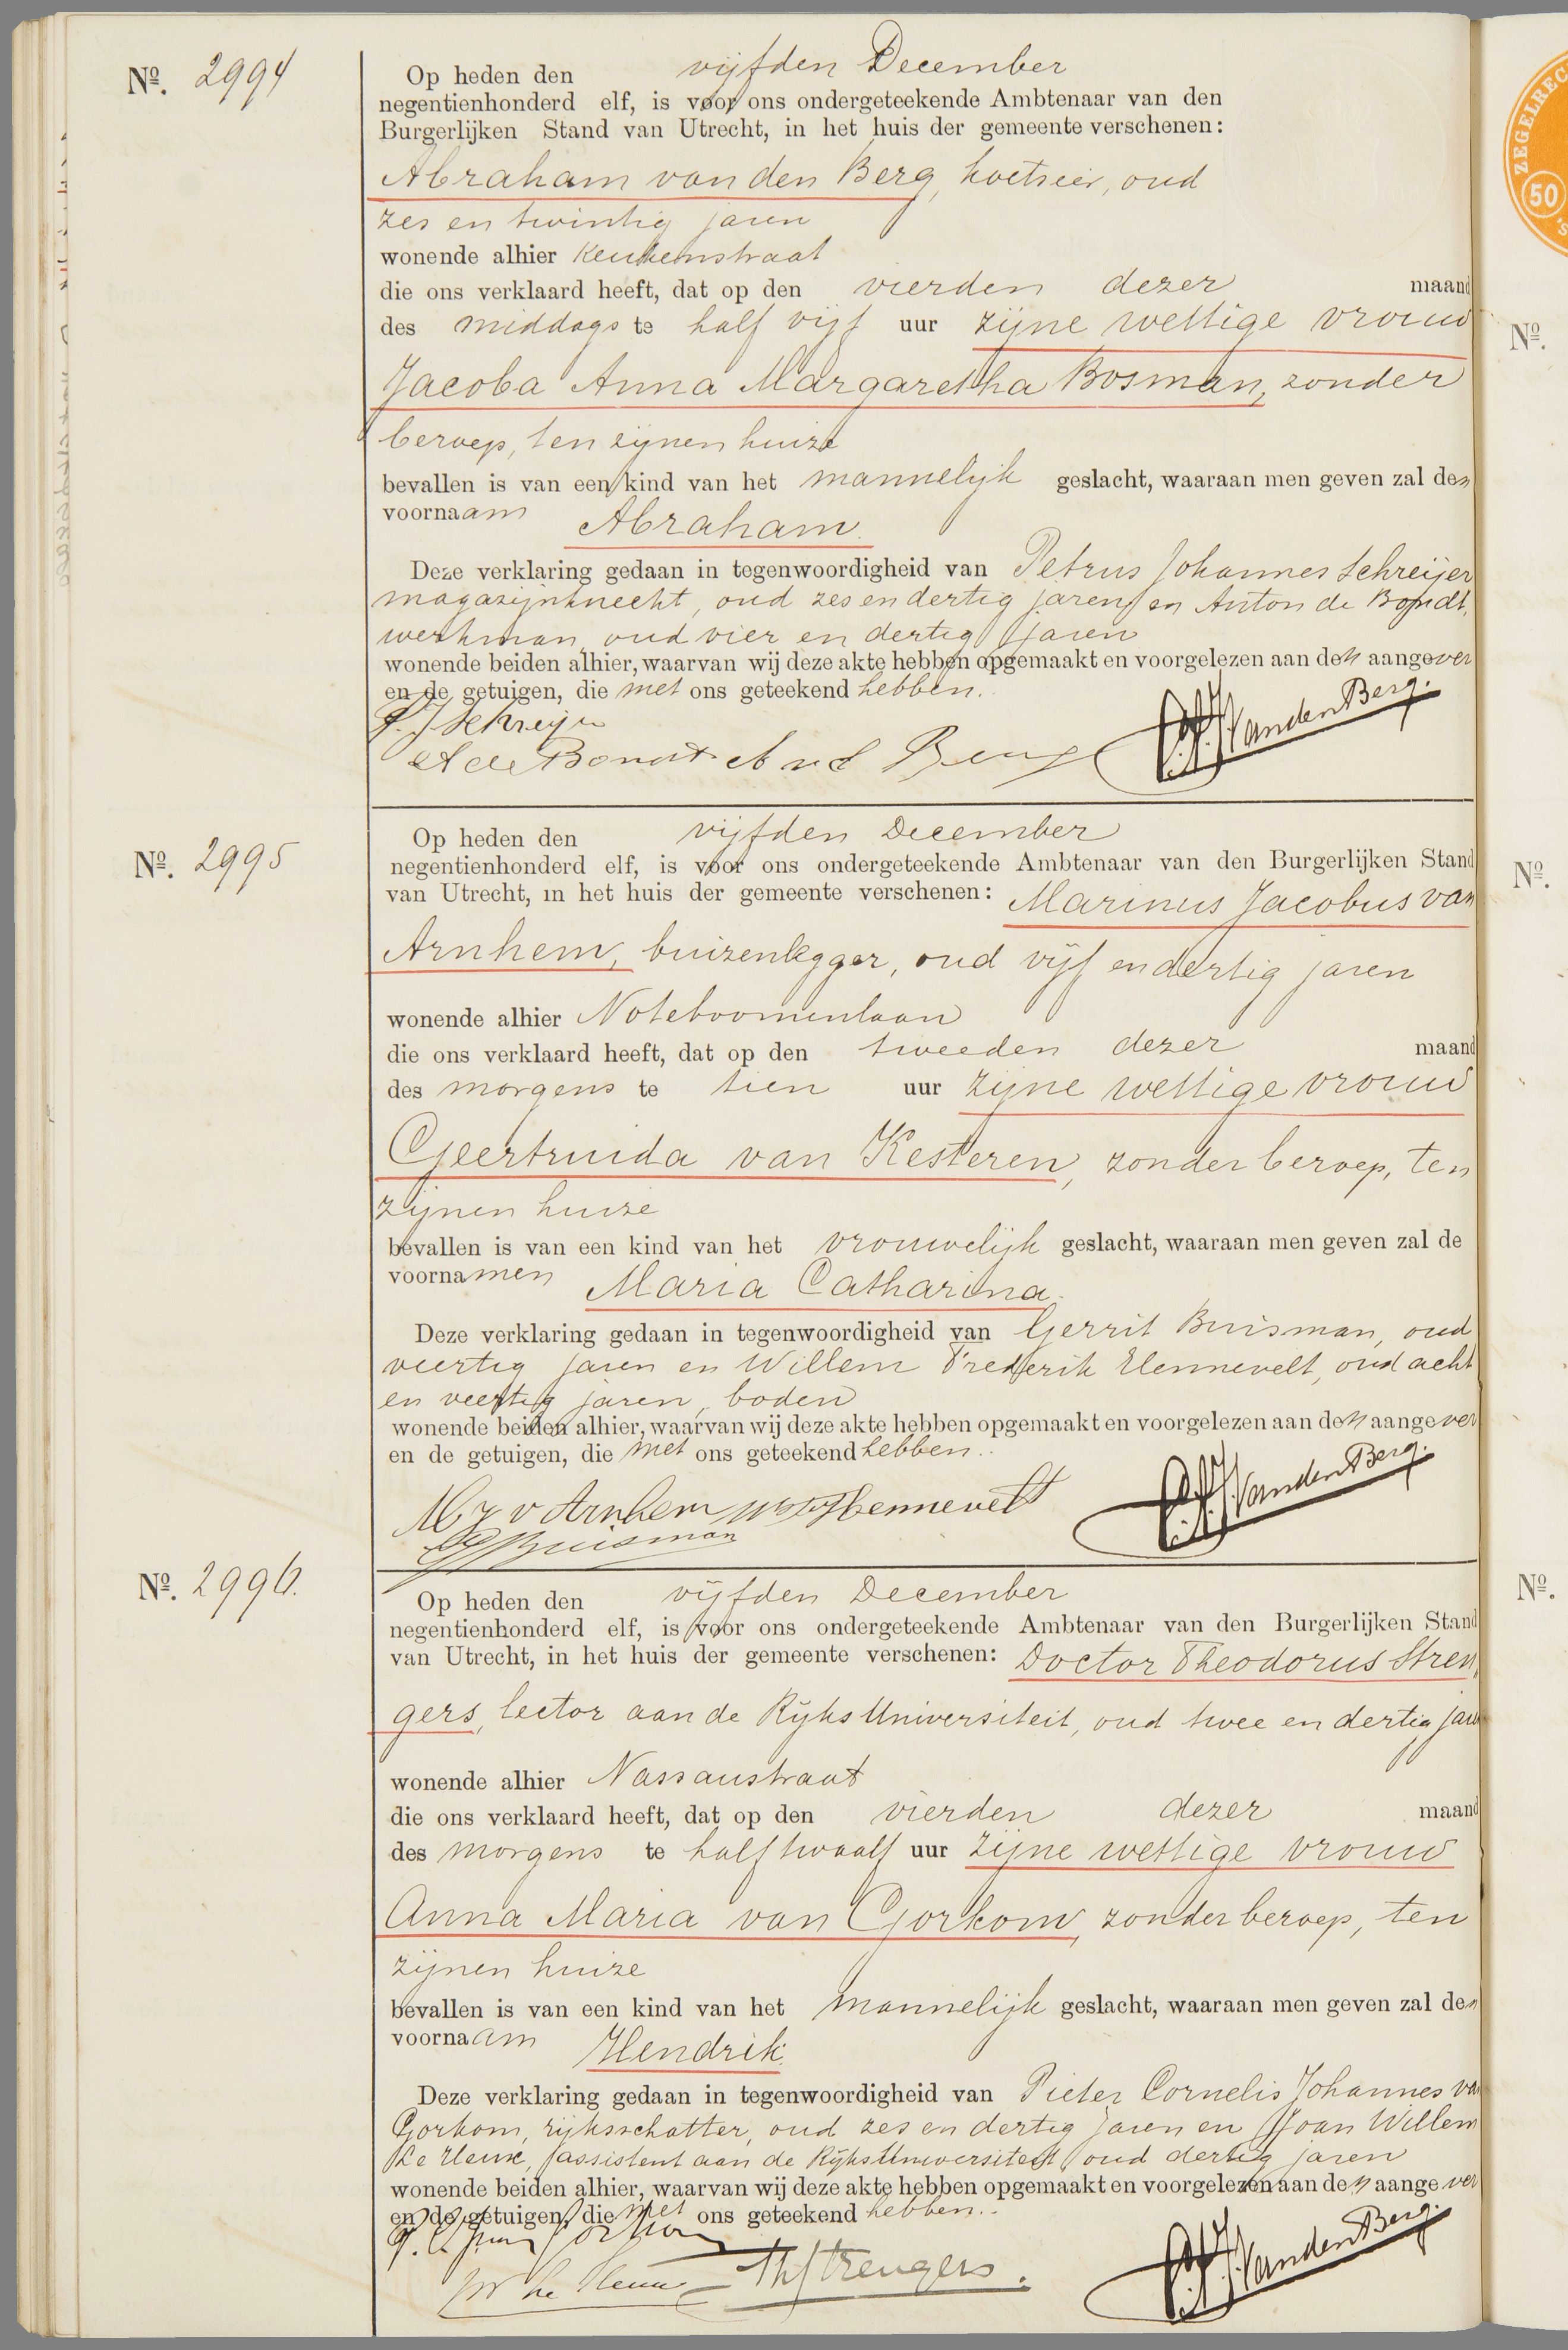 Nº. 2994
Op heden den vijfden December
negentienhonderd elf, is voor ons ondergeteekende Ambtenaar van den
Burgerlijken Stand van Utrecht, in het huis der gemeente verschenen:
Abraham van den Berg, koetsier, oud
zes en twintig jaren
wonende alhier Keukenstraat
die ons verklaard heeft, dat op den vierden dezer maand
des middags te half vijf uur zijne wettige vrouw
Jacoba Anna Margaretha Bosman, zonder
beroep, ten zijnen huize
bevallen is van een kind van het mannelijk geslacht, waaraan men geven zal den
voornaam Abraham.
Deze verklaring gedaan in tegenwoordigheid van Petrus Johannes Schreijer
magazijnknecht, oud zes en dertig jaren en Anton de Bondt,
werkman, oud vier en dertig jaren
wonende beiden alhier, waarvan wij deze akte hebben opgemaakt en voorgelezen aan den aangever
en de getuigen, die met ons geteekend hebben.
P. J. Schreijer
A de Bondt A v d Berg
VandenBerg.
Nº. 2995
Op heden den vijfden December
negentienhonderd elf, is voor ons ondergeteekende Ambtenaar van den Burgerlijken Stand
van Utrecht, in het huis der gemeente verschenen: Marinus Jacobus van
Arnhem, buizenlegger, oud vijf en dertig jaren
wonende alhier Noteboomenlaan
die ons verklaard heeft, dat op den tweeden dezer maand
des morgens te tien uur zijne wettige vrouw
Geertruida van Kesteren, zonder beroep, ten
zijnen huize
bevallen is van een kind van het vrouwelijk geslacht, waaraan men geven zal de
voornamen Maria Catharina.
Deze verklaring gedaan in tegenwoordigheid van Gerrit Buisman, oud
veertig jaren en Willem Frederik Elennevelt, oud acht
en veertig jaren, boden
wonende beiden alhier, waarvan wij deze akte hebben opgemaakt en voorgelezen aan den aangever
en de getuigen, die met ons geteekend hebben.
M J v Arnhem
G Buisman
VandenBerg.
Nº. 2996.
Op heden den vijfden December
negentienhonderd elf, is voor ons ondergeteekende Ambtenaar van den Burgerlijken Stand
van Utrecht, in het huis der gemeente verschenen: Doctor Theodorus Stren
gers, lector aan de Rijks Universiteit, oud twee en dertig jaren
wonende alhier Nassaustraat
die ons verklaard heeft, dat op den vierden dezer maand
des morgens te half twaalf uur zijne wettige vrouw
Anna Maria van Gorkom, zonder beroep, ten
zijnen huize
bevallen is van een kind van het mannelijk geslacht, waaraan men geven zal den
voornaam Hendrik.
Deze verklaring gedaan in tegenwoordigheid van Pieter Cornelis Johannes van
Gorkom, rijksschatter, oud zes en dertig jaren en Joan Willem
Le Heux, assistent aan de Rijks Universiteit, oud dertig jaren
wonende beiden alhier, waarvan wij deze akte hebben opgemaakt en voorgelezen aan den aangever
en de getuigen, die met ons geteekend hebben.
JW Le Heux Th Strengers.
VandenBerg.
ZEGELREC
50
Nº.
Nº.
Nº.